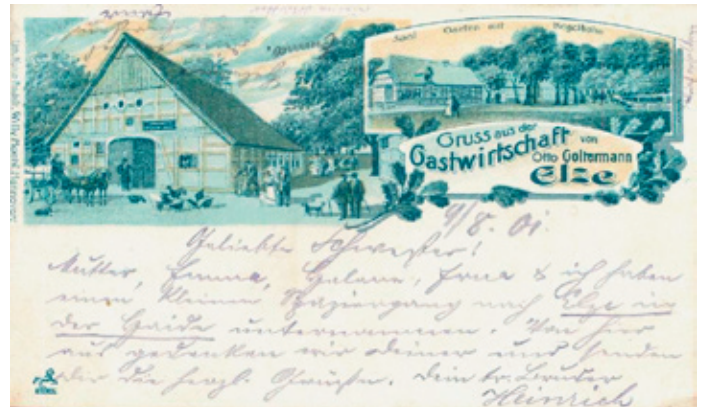 Saal Garten mit Kegelbahn
Gruss aus der
Gastwirtschaft von
Otto Goltermann
Elze
9/8. 01.
Geliebte Schwester!
Mutter, Emma, Helene, Erna & ich haben
einen kleinen Spaziergang nach Elze in
der Haide unternommen. Von hier
aus gedenken wir deiner und senden
dir die herzl. Grüsse. Dein tr. Bruder
Heinrich